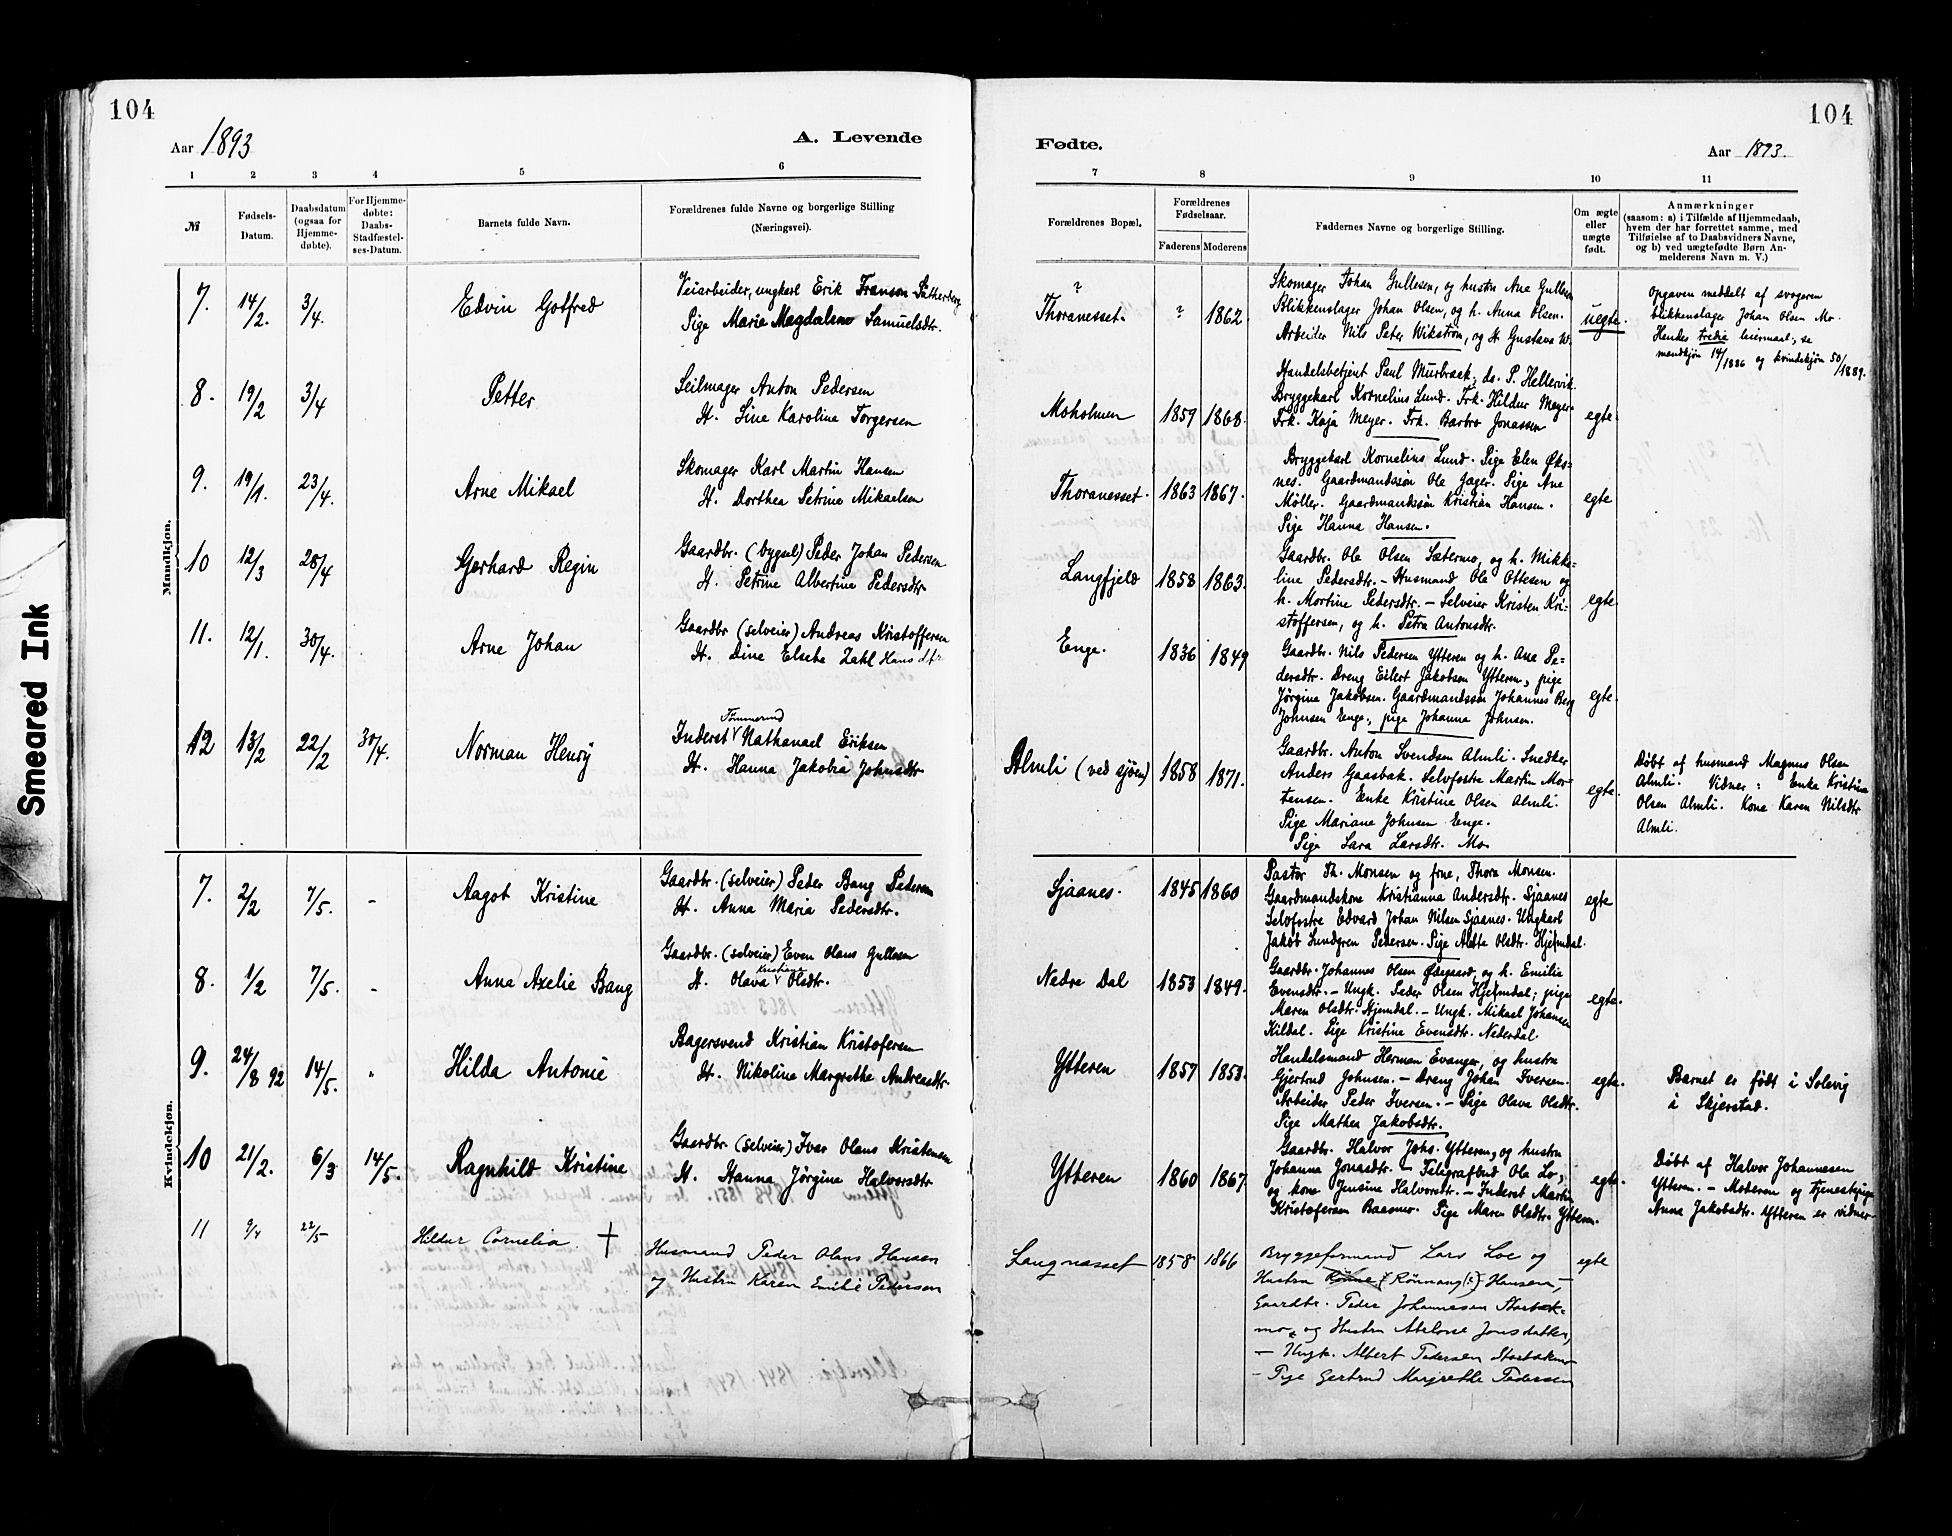 104
104
Aar 1893
A. Levende
Fødte.
Aar 1893.
1 2 3 4 5 6
7 8 9 10 11
№
Fødsels-
Datum.
Daabsdatum
(ogsaa for
Hjemme-
døbte).
For Hjemme-
døbte:
Daabs-
Stadfæstel-
ses-Datum.
Barnets fulde Navn.
Forældrenes fulde Navne og borgerlige Stilling
(Næringsvei).
Forældrenes Bopæl.
Forældrenes
Fødselsaar.
Faderens Moderens
Faddernes Navne og borgerlige Stilling.
Om ægte
eller
uægte
født.
Anmærkninger
(saasom: a) i Tilfælde af Hjemmedaab,
hvem der har forrettet samme, med
Tilføielse af to Daabsvidners Navne,
og b) ved uægtefødte Børn An-
melderens Navn m. V.)
Mandkjøn.
7. 14/2. 3/4. Edvin Gotfred
Veiarbeider, ungkarl Erik Franson Sätherberg
Pige Marie Magdalene Samuelsdtr.
?
Thoranesset. ? 1862.
Skomager Johan Gullesen, og hustru Ane Gullesen
Blikkenslager Johan Olsen, og h. Anna Olsen.
Arbeider Nils Peter Wikstrøm, og H. Gustava W.
uegte.
Opgaven meddelt af svogeren
blikkenslager Johan Olsen Mo.
Hendes tredie leiermaal; se
mandkjøn 14/1886 og kvindekjøn 50/1889.
8. 19/2 3/4 Petter
Seilmager Anton Pedersen
H. Sine Karoline Torgersen
Moholmen 1859 1868.
Handelsbetjent Paul Murbræck, do. P. Hellervik
Bryggekarl Kornelius Lund. Frk. Hildur Meyer.
Frk. Kaja Meyer. Frk. Barbro Jonassen
egte.
9. 19/1. 23/4. Arne Mikael
Skomager Karl Martin Hansen
H. Dorthea Petrine Mikaelsen
Thoranesset. 1863 1867.
Bryggekarl Kornelius Lund. Pige Elen Øks-
nes. Gaardmandssøn Ole Jager. Pige Ane
Møller. Gaardmandssøn Kristian Hansen.
Pige Hanna Hansen.
egte
10 12/3 28/4 Gerhard Regin
Gaardbr. (bygsel) Peder Johan Pedersen
H. Petrine Albertine Pedersdtr.
Langfjeld 1858 1863.
Gaardbr. Ole Olsen Sætermo, og h. Mikke-
line Pedersdtr. - Husmand Ole Ottesen og
h. Mortine Pedersdtr. - Selveier Kristen Kri-
stoffersen, og h. Petra Antonsdtr.
egte.
11. 12/1. 30/4. Arne Johan
Gaardbr (selveier) Andreas Kristoffersen
H. Dine Elsebe Zahl Hansdtr
Enge. 1836 1849
Gaardbr. Nils Pedersen Ytteren og h. Ane Pe-
dersdtr. Dreng Eilert Jakobsen Ytteren, pige
Jørgine Jakobsen. Gaardmandssøn Johannes Berg
Johnsen Enge, pige Johanna Johnsen.
egte.
12 13/2 22/2 30/4. Norman Henry
Tømmermd
Inderst Nathanael Eriksen
H. Hanna Jakobia Johnsdtr
Almli (ved sjøen) 1858 1871.
Gaardbr. Anton Svendsen Almli. Snedker
Anders Gaasbak. Selvfostre Martin Mor-
tensen. Enke Kristine Olsen Almli.
Pige Mariane Johnsen Enge.
Pige Sara Larsdtr. Mo
egte.
Døbt af husmand Magnus Olsen
Almli. Vidner: Enke Kristine
Olsen Almli. Kone Karen Nilsdtr
Almli.
Kvindekjøn.
7. 2/2 7/5. - Aagot Kristine
Gaardbr. (selveier) Peder Bang Pedersen
H. Anna Maria Pedersdtr.
Sjaanes. 1845 1860
Pastor Th. Monsen og frue, Thora Monsen.
Gaardmandskone Kristianna Andersdtr. Sjaanes
Selvfostre Edvard Johan Nilsen Sjaanes. Ungkarl
Jakob Lundgren Pedersen. Pige Aldte Olsdtr. Hjemdal.
egte
8. 1/2 7/5. - Anna Axelie Bang
Gaardbr. (selveier) Even Olaus Gullesen
Kristine
H. Olava Olsdtr.
Nedre Dal 1853 1849.
Gaardbr. Johannes Olsen Ødegaard, og h. Emilie
Evensdtr. - Ungk. Peder Olsen Hjemdal; pige
Maren Olsdtr. Hjemdal. - Ungk. Mikael Johansen
Kildal. Pige Kristine Evensdtr. Nederdal.
egte.
9. 24/8 92 14/5. " Hilda Antonie
Bagersvend Kristian Kristofersen
H. Nikoline Margrethe Andreasdtr.
Ytteren 1857 1853.
Handelsmand Herman Evanger, og hustru
Gjertrud Johnsen. - Dreng Johan Iversen.
Arbeider Peder Iversen. - Pige Olava Olsdtr.
Pige Mathea Jakobsdtr.
egte.
Barnet er født i Solvig
i Skjerstad.
10 21/2. 6/3 14/5. Ragnhild Kristine
Gaardbr (selveier) Ivar Olaus Kristensen
H. Hanna Jørgine Halvorsdtr
Ytteren 1860 1867
Gaardbr. Halvor Johs. Ytteren, og hustru
Johanna Jonasdtr. - Telegrafbud Ole Lo,
og kone Jensine Halvorsdtr. - Inderst Martin
Kristofersen Baasmo. Pige Maren Olsdtr. Ytteren.
egte.
Døbt af Halvor Johannesen
Ytteren. - Moderen og tjenestepige
Anna Jakobsdtr. Ytteren er vidner.
11 9/4 22/5 Hildur Cornelia. †
Husmand Peder Olaus Hansen
og Hustru Karen Emilie Pedersen
Langnesset 1858 1866
Bryggeformand Lars Loe og
Hustru Rønnaug Hansen, -
Gaardbr. Peder Johannesen Storbæk-
mo, og Hustru Abelone Jonsdatter,
- Ungk. Albert Pedersen Storbækmo
- Pige Gertrud Margrethe Pedersen
egte
Smeared Ink